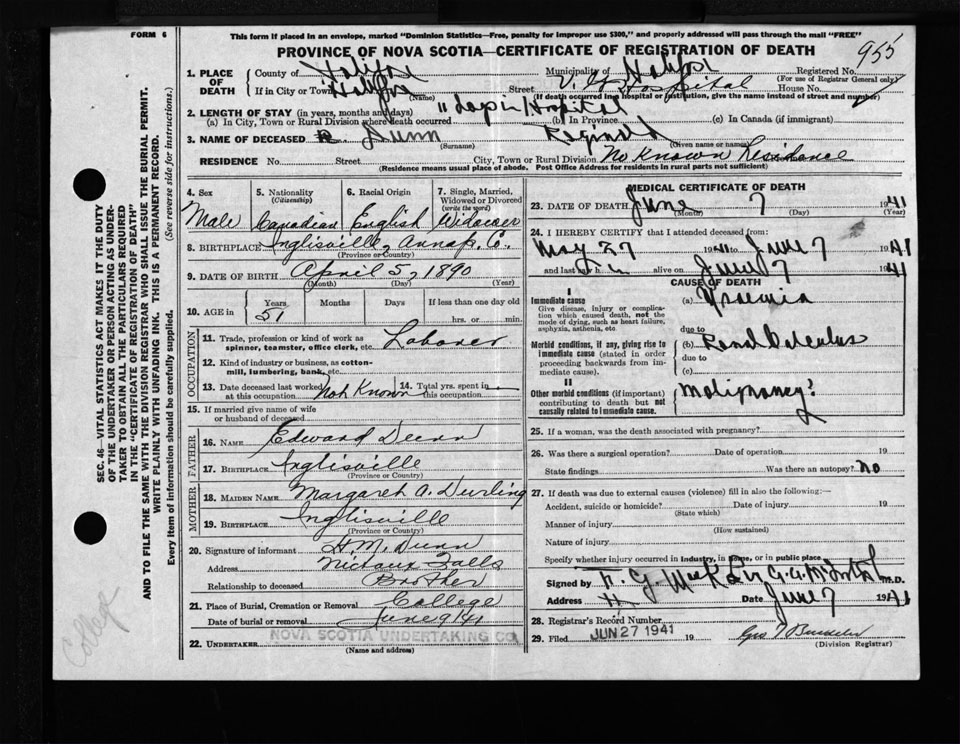 FORM 6
This form if placed in an envelope, marked "Dominion Statistics—Free, penalty for improper use $300," and properly addressed will pass through the mail "FREE"
PROVINCE OF NOVA SCOTIA—CERTIFICATE OF REGISTRATION OF DEATH
955
1. PLACE OF DEATH
County of Halifax Municipality of Halifax Registered No.
(For use of Registrar General only)
If in City or Town Halifax Street V. G. Hospital House No.
(Name) (If death occurred in a hospital or institution, give the name instead of street and number)
2. LENGTH OF STAY (in years, months and days)
(a) In City, Town or Rural Division where death occurred 11 days in Hospital (b) In Province (c) In Canada (if immigrant)
3. NAME OF DECEASED Dunn Reginald
(Surname) (Given name or names)
RESIDENCE No. Street City, Town or Rural Division No Known Residence
(Residence means usual place of abode. Post Office Address for residents in rural parts not sufficient)
4. Sex Male
5. Nationality (Citizenship) Canadian
6. Racial Origin English
7. Single, Married, Widowed or Divorced (write the word) Widower
8. BIRTHPLACE Inglisville, Annap. Co.
(Province or Country)
9. DATE OF BIRTH April 5, 1890
(Month) (Day) (Year)
10. AGE in Years Months Days If less than one day old
51 hrs. or min.
OCCUPATION
11. Trade, profession or kind of work as spinner, teamster, office clerk, etc. Laborer
12. Kind of industry or business, as cotton-mill, lumbering, bank, etc.
13. Date deceased last worked at this occupation Not Known
14. Total yrs. spent in this occupation
15. If married give name of wife or husband of deceased
FATHER
16. NAME Edward Dunn
17. BIRTHPLACE Inglisville
(Province or Country)
MOTHER
18. MAIDEN NAME Margaret A. Durling
19. BIRTHPLACE Inglisville
(Province or Country)
20. Signature of informant H. M. Dunn
Address Nictaux Falls
Relationship to deceased Brother
21. Place of Burial, Cremation or Removal College
Date of burial or removal June 9 1941
22. UNDERTAKER NOVA SCOTIA UNDERTAKING CO.
(Name and address)
MEDICAL CERTIFICATE OF DEATH
23. DATE OF DEATH June 7 1941
(Month) (Day) (Year)
24. I HEREBY CERTIFY that I attended deceased from:
May 27 1941 to June 7 1941
and last saw h im alive on June 7 1941
CAUSE OF DEATH
I
Immediate cause (a) Uraemia
Give disease, injury or complication which caused death, not the mode of dying, such as heart failure, asphyxia, asthenia, etc
due to
Morbid conditions, if any, giving rise to immediate cause (stated in order proceeding backwards from immediate cause).
(b) Renal Calculus
due to
(c)
II
Other morbid conditions (if important) contributing to death but not causally related to immediate cause.
Malignancy?
25. If a woman, was the death associated with pregnancy?
26. Was there a surgical operation? Date of operation 19
State findings Was there an autopsy? No
27. If death was due to external causes (violence) fill in also the following:—
Accident, suicide or homicide? Date of injury 19
(State which)
Manner of injury
(How sustained)
Nature of injury
Specify whether injury occurred in Industry, in home, or in public place
Signed by M.D.
Address Date June 7 1941
28. Registrar's Record Number
29. Filed JUN 27 1941 19
(Division Registrar)
SEC. 46—VITAL STATISTICS ACT MAKES IT THE DUTY
OF THE UNDERTAKER OR PERSON ACTING AS UNDER-
TAKER TO OBTAIN ALL THE PARTICULARS REQUIRED
IN THE "CERTIFICATE OF REGISTRATION OF DEATH"
AND TO FILE THE SAME WITH THE DIVISION REGISTRAR WHO SHALL ISSUE THE BURIAL PERMIT.
WRITE PLAINLY WITH UNFADING INK. THIS IS A PERMANENT RECORD.
Every item of Information should be carefully supplied. (See reverse side for instructions.)
College